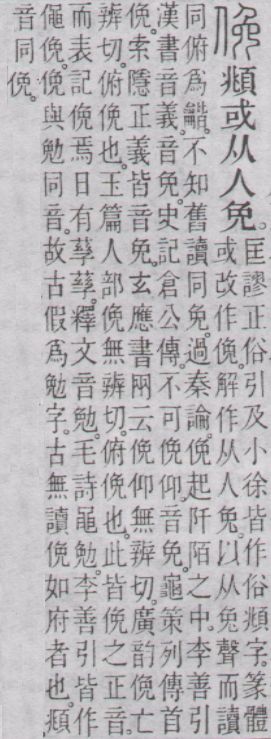 俛頫或从人免。
匡謬正俗引及小徐皆作俗頫字。篆體
或改作俛。解作从人兔。以从兔聲而讀
同俯爲龤。不知舊讀同免。過秦論俛起阡陌之中。李善引
漢書音義音免。史記倉公傳。不可俛仰。音免。龜策列傳首
俛。索隱正義皆音免。玄應書网云俛仰無辨切。廣韵俛亡
辨切。俯俛也。玉篇人部俛無辨切。俯俛也。此皆俛之正音。
而表記俛焉日有孶孶。釋文音勉。毛詩黽勉。李善引皆作
僶俛。俛與勉同音。故古假爲勉字。古無讀俛如府者也。頫
音同俛。